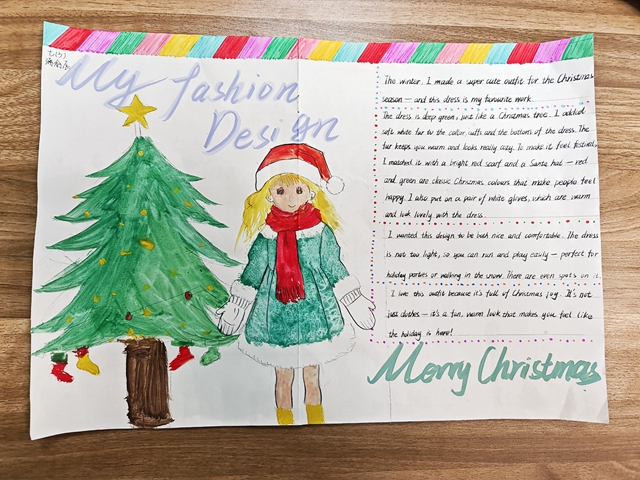 My fashion
Design
The winter. I made a super cute outfit for the Christmas
season — and this dress is my favourite work.
The dress is deep green, just like a Christmas tree. I added
soft white fur to the collar, cuffs and the bottoms of the dress. The
fur keeps you warm and looks really cozy. To make it feel festival,
I matched it with a bright red scarf and a Santa hat — red
and green are classic Christmas colours that make people feel
happy. I also put on a pair of white gloves, which are warm
and look lovely with the dress.
I wanted this design to be both nice and comfortable. The dress
is not too light, so you can run and play easily — perfect for
holiday parties or walking in the snow. There are even spots on it.
I love this outfit because it's full of Christmas joy. It's not
just clothes — it's a fun, warm look that makes you feel like
the holiday is here!
Merry Christmas